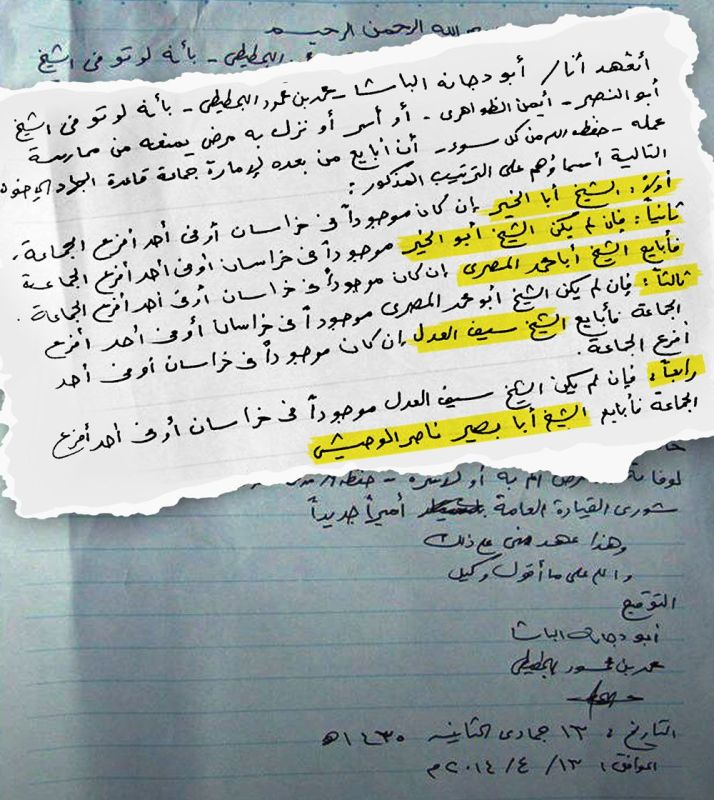 الله الرحمن الرحيم
البحطيطي - بأنه لو توفى الشيخ
أتعهد أنا / أبو دجانه الباشا - محمد بن محمود البحطيطي - بأنه لو توفى الشيخ
أبو النصر - أيمن الظواهري - أو أسر أو نزل به مرض يمنعه من ممارسة
عمله - حفظه الله من كل سوء - أن أبايع من بعده لإمارة جماعة قاعدة الجهاد الإخوة
التالية أسماؤهم على الترتيب المذكور :
أولاً : الشيخ أبا الخير إن كان موجوداً في خراسان أو في أحد أفرع الجماعة .
ثانياً : فإن لم يكن الشيخ أبو الخير موجوداً في خراسان أو في أحد أفرع الجماعة
فأبايع الشيخ أبا محمد المصري إن كان موجوداً في خراسان أو في أحد أفرع الجماعة .
ثالثاً : فإن لم يكن الشيخ أبو محمد المصري موجوداً في خراسان أو في أحد أفرع
الجماعة فأبايع الشيخ سيف العدل إن كان موجوداً في خراسان أو في أحد
أفرع الجماعة .
رابعاً : فإن لم يكن الشيخ سيف العدل موجوداً في خراسان أو في أحد أفرع
الجماعة فأبايع الشيخ أبا بصير ناصر الوحيشي
أو لأسره - حفظه
شورى القيادة العامة أميراً جديداً
وهذا عهد مني على ذلك
والله على ما أقول وكيل
التوقيع
أبو دجانه الباشا
محمد بن محمود البحطيطي
التاريخ : ١٣ جمادى الثانية ١٤٣٥ هـ
الموافق : ١٣ / ٤ / ٢٠١٤ م